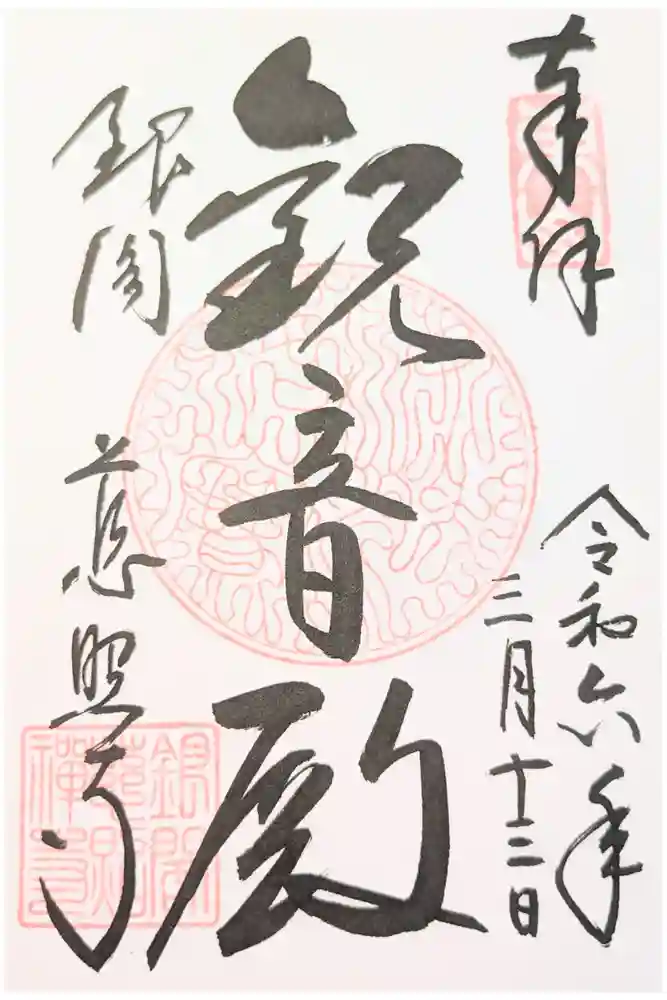 奉拝
令和六年
三月十二日
観音殿
銀閣
慈照寺
銀閣
慈照
禅寺